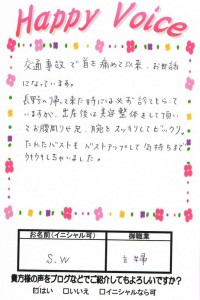 Happy Voice
交通事故で首を痛めて以来、お世話
になっています。
長野に帰って来た時には必ず診てもらって
いますが、出産後は美容整体をして頂い
てお腹周りや足、腕をスッキリしてビックリ。
たれたバストもバストアップして気持ちまで
ウキウキしちゃいました。
お名前(イニシャル可) 御職業
S.W 主婦
貴方様の声をブログなどでご紹介してもよろしいですか？
☑はい □いいえ □イニシャルなら可